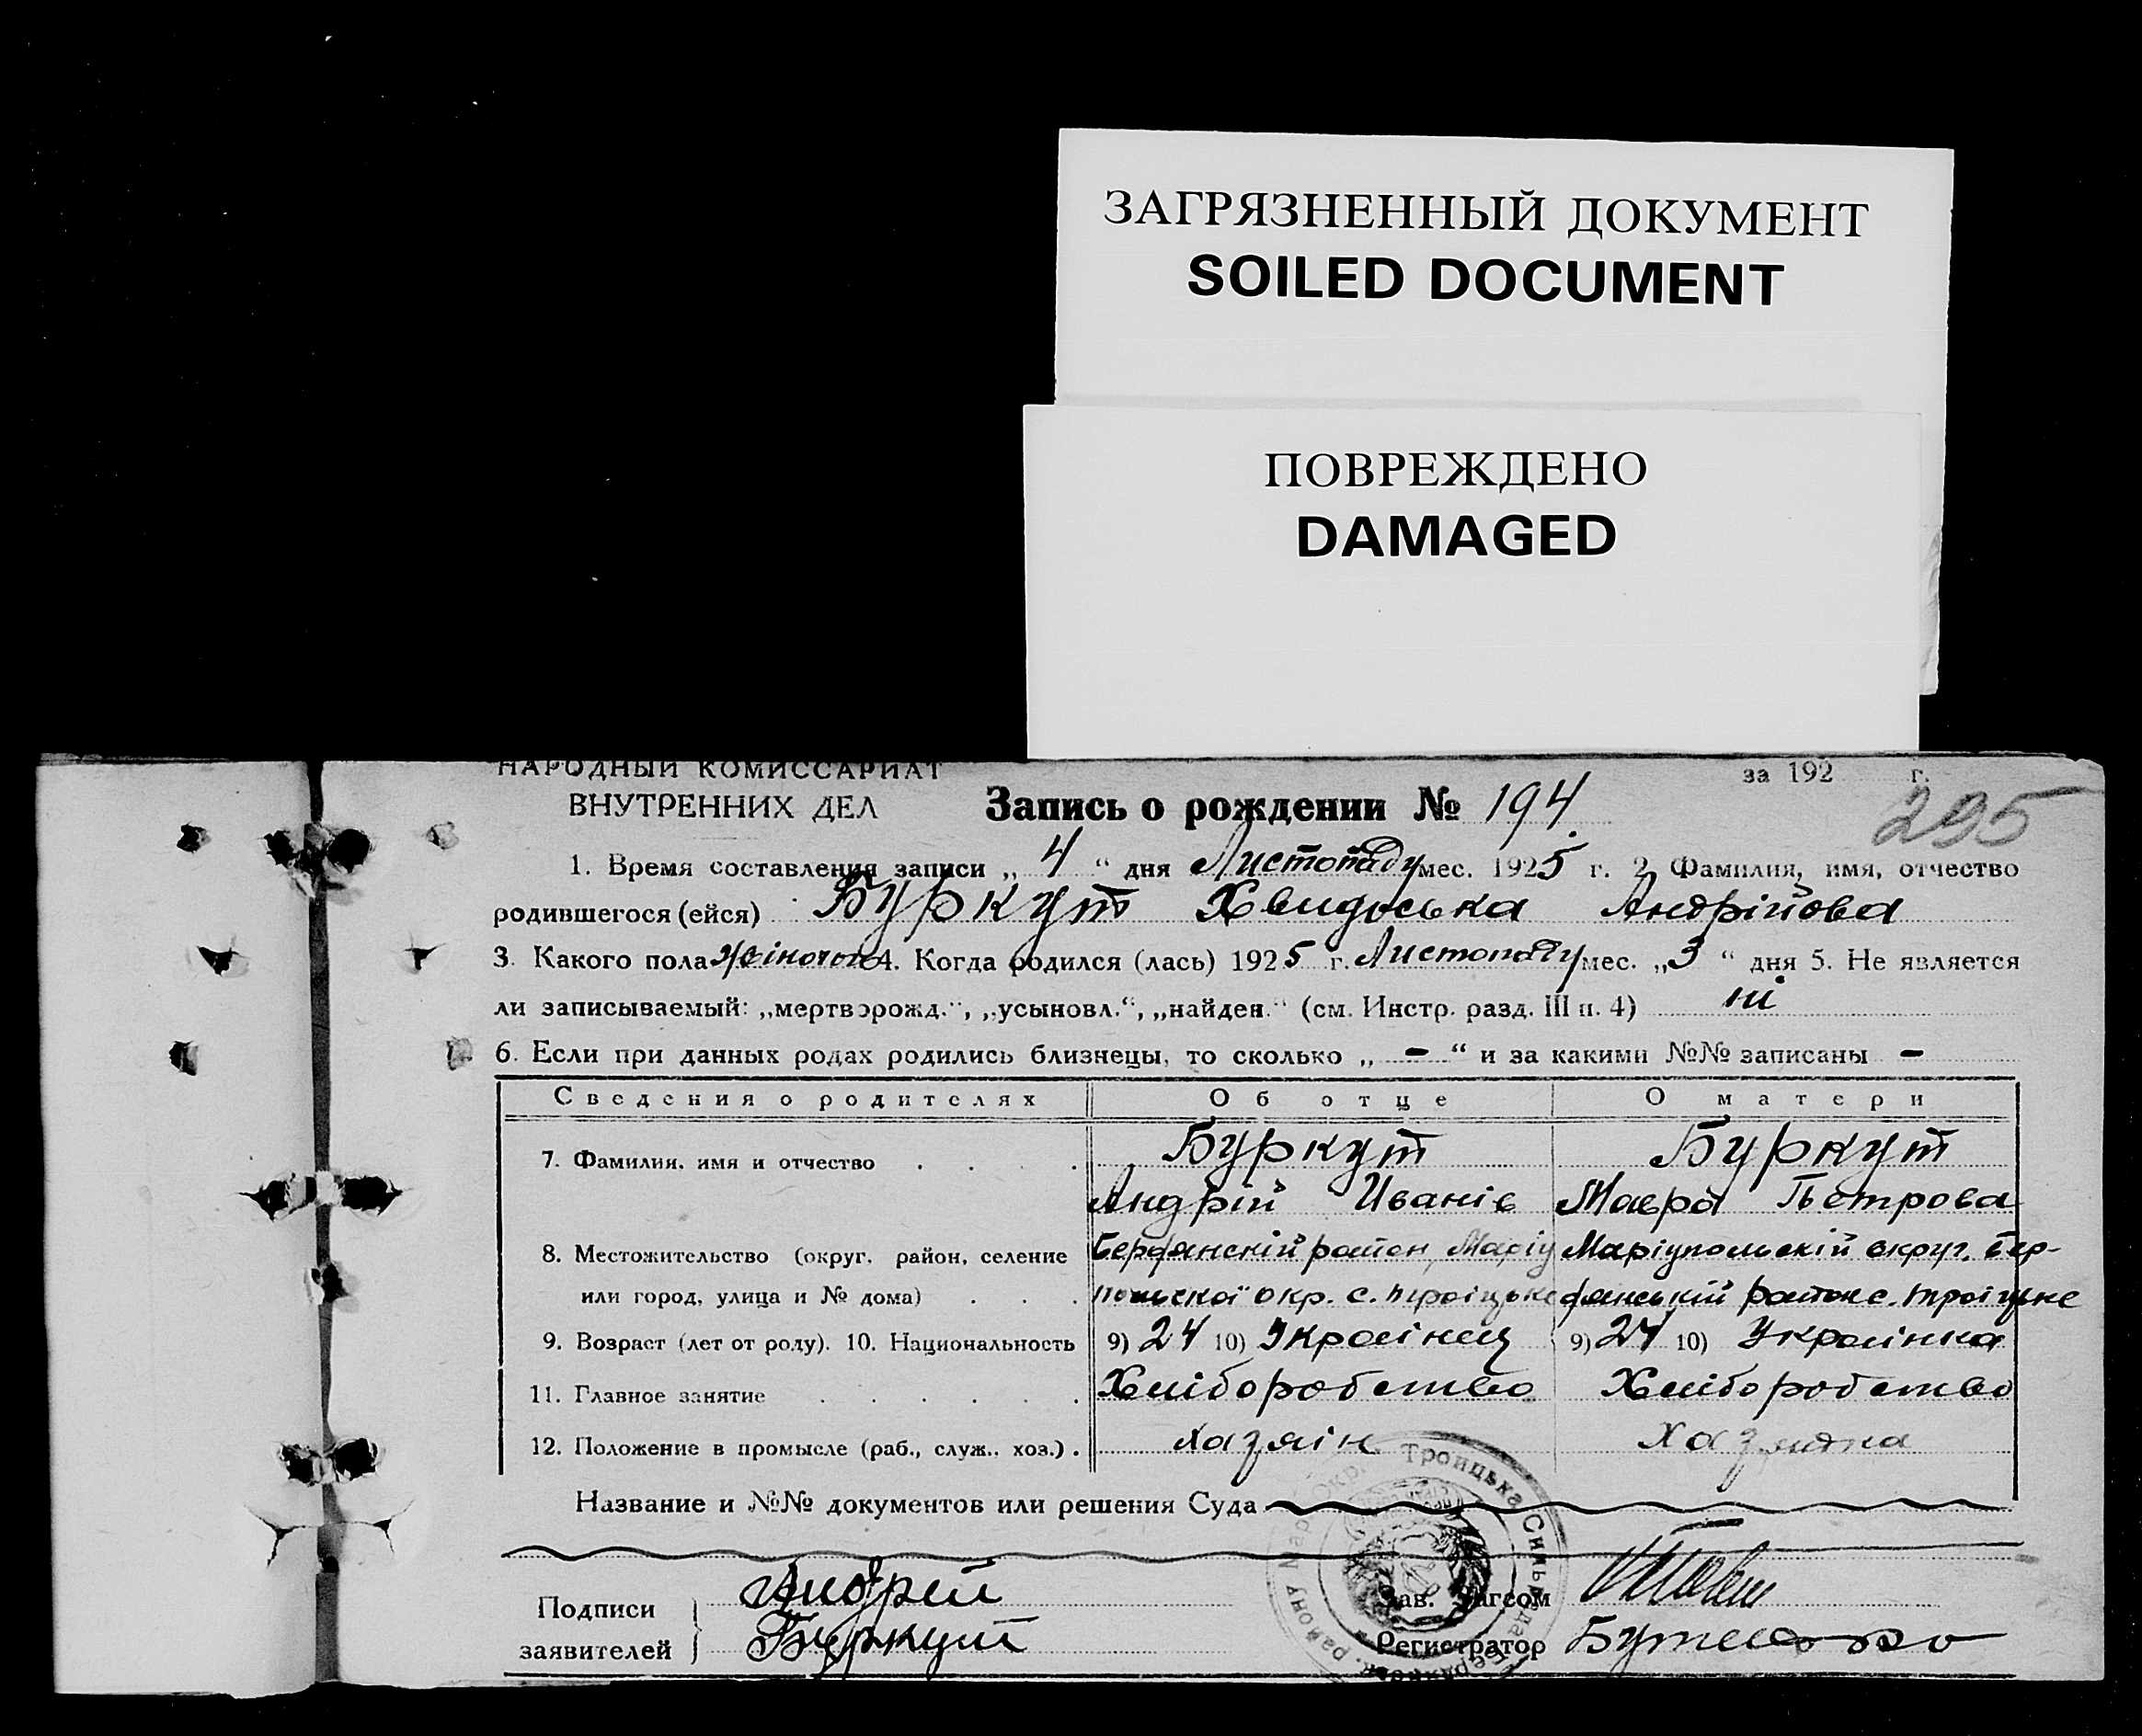 ЗАГРЯЗНЕННЫЙ ДОКУМЕНТ
SOILED DOCUMENT
ПОВРЕЖДЕНО
DAMAGED
НАРОДНЫЙ КОМИССАРИАТ
ВНУТРЕННИХ ДЕЛ
за 192 г.
Запись о рождении № 194
295
1. Время составления записи „ 4 “ дня Листопаду мес. 1925 г. 2. Фамилия, имя, отчество
родившегося (ейся) Буркут Хвидоська Андрійова
3. Какого пола жіночого 4. Когда родился (лась) 1925 г. Листопаду мес. „3 “ дня 5. Не является
ли записываемый: „мертворожд.“, „усыновл.“, „найден.“ (см. Инстр. разд. III п. 4) ні
6. Если при данных родах родились близнецы, то сколько „ - “ и за какими №№ записаны -
Сведения о родителях Об отце О матери
7. Фамилия, имя и отчество . . . . Буркут Буркут
Андрій Иванів Мавра Петрова
8. Местожительство (округ, район, селение Бердянскій район, Маріу Маріупольскій округ. Бер-
или город, улица и № дома) . . . польскоі окр. с. Троіцьке дянський район с. Троіцьке
9. Возраст (лет от роду). 10. Национальность 9) 24 10) Украінец 9) 24 10) Украінка
11. Главное занятие . . . . . . Хліборобство Хліборобство
12. Положение в промысле (раб., служ., хоз.) . Хазяін Хазяйка
Название и №№ документов или решения Суда
Троицька
Подписи Андрей Зав. Загсом
заявителей Буркут Регистратор